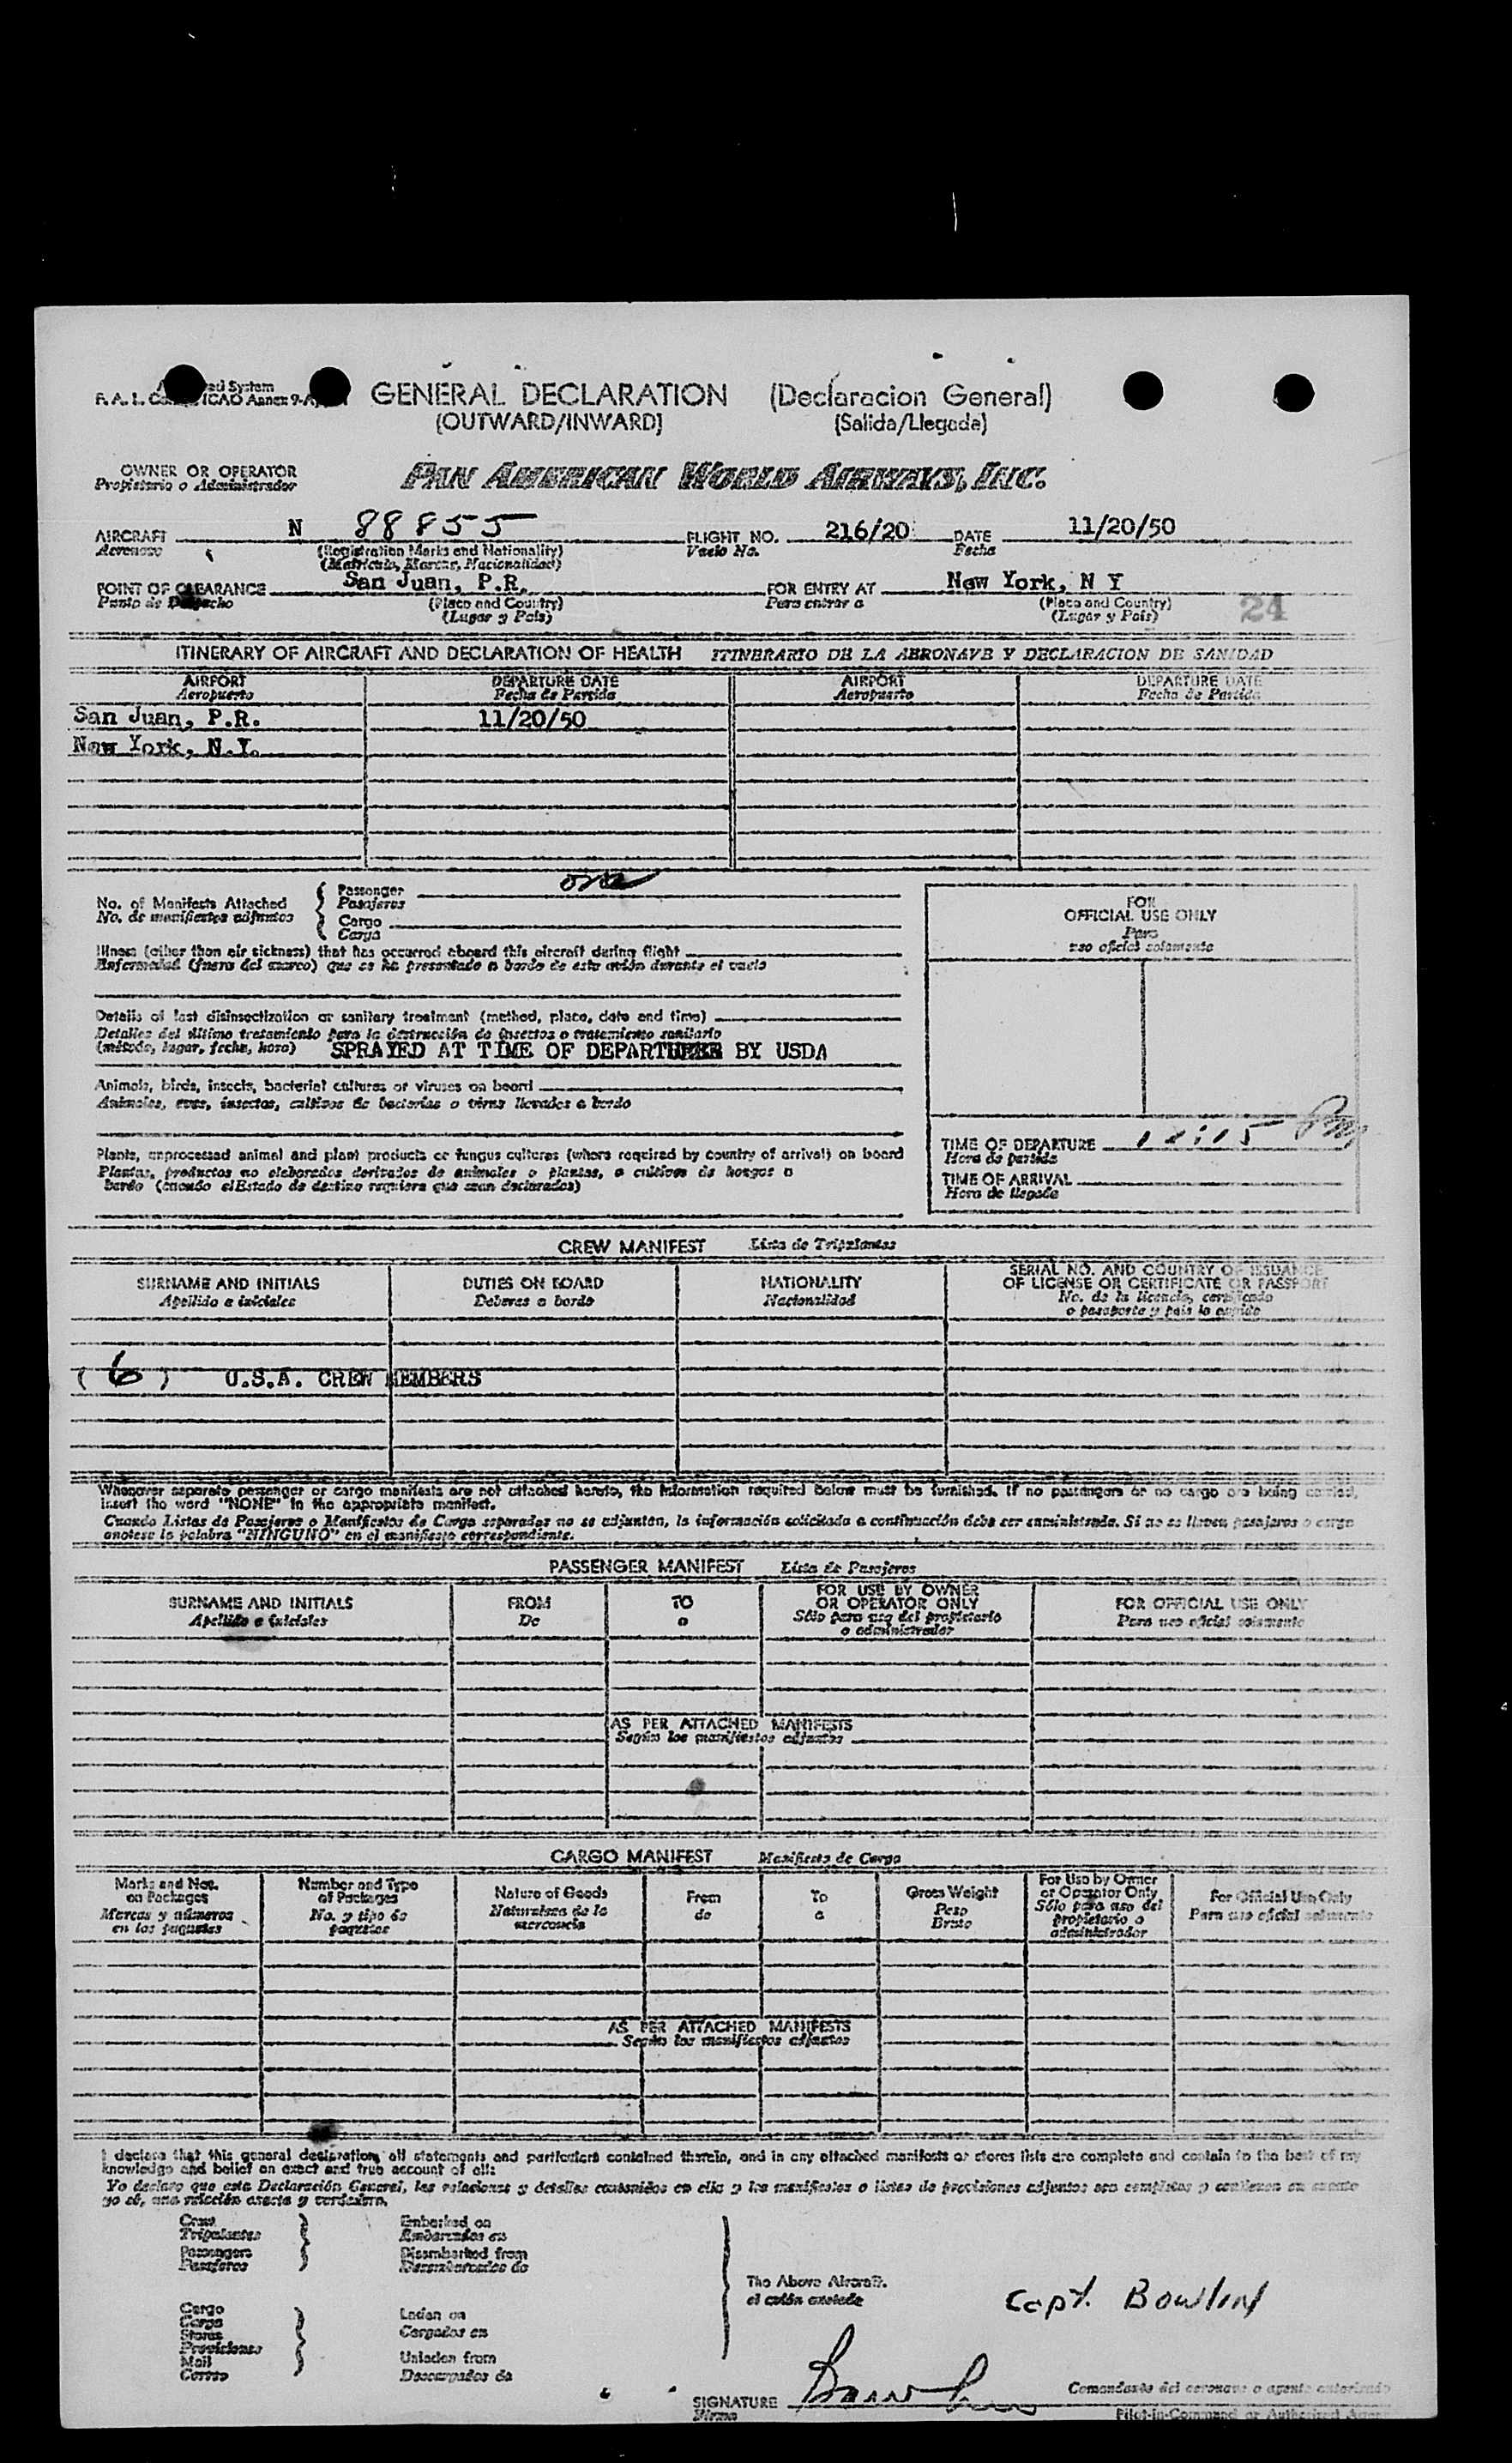 GENERAL DECLARATION (Declaracion General)
(OUTWARD/INWARD) (Salida/Llegada)
OWNER OR OPERATOR PAN AMERICAN WORLD AIRWAYS, INC.
Propietario o Administrador
AIRCRAFT N 88855 FLIGHT NO. 216/20 DATE 11/20/50
Aeronave (Registration Marks and Nationality) Vuelo No. Fecha
(Matricula, Marcas, Nacionalidad)
POINT OF CLEARANCE San Juan, P.R. FOR ENTRY AT New York, N Y
Punto de Despacho (Place and Country) Para entrar a (Place and Country) 24
(Lugar y País) (Lugar y País)
ITINERARY OF AIRCRAFT AND DECLARATION OF HEALTH ITINERARIO DE LA AERONAVE Y DECLARACION DE SANIDAD
AIRPORT DEPARTURE DATE AIRPORT DEPARTURE DATE
Aeropuerto Fecha de Partida Aeropuerto Fecha de Partida
San Juan, P.R. 11/20/50
New York, N.Y.
No. of Manifests Attached Passenger one
No. de manifiestos adjuntos Pasajeros
Cargo
Carga
FOR
OFFICIAL USE ONLY
Para
uso oficial solamente
Illness (other than air sickness) that has occurred aboard this aircraft during flight
Enfermedad (fuera del mareo) que se ha presentado a bordo de este avión durante el vuelo
Details of last disinsectization or sanitary treatment (method, place, date and time)
Detalles del último tratamiento para la destrucción de insectos o tratamiento sanitario
(método, lugar, fecha, hora) SPRAYED AT TIME OF DEPARTURE BY USDA
Animals, birds, insects, bacterial cultures or viruses on board
Animales, aves, insectos, cultivos de bacterias o virus llevados a bordo
Plants, unprocessed animal and plant products or fungus cultures (where required by country of arrival) on board
Plantas, productos no elaborados derivados de animales o plantas, o cultivos de hongos a
bordo (cuando el Estado de destino requiera que sean declarados)
TIME OF DEPARTURE
Hora de partida
TIME OF ARRIVAL
Hora de llegada
CREW MANIFEST Lista de Tripulantes
SURNAME AND INITIALS DUTIES ON BOARD NATIONALITY SERIAL NO. AND COUNTRY OF ISSUANCE
Apellido e iniciales Deberes a bordo Nacionalidad OF LICENSE OR CERTIFICATE OR PASSPORT
No. de la licencia, certificado
o pasaporte y país lo expide
(6) U.S.A. CREW MEMBERS
Whenever separate passenger or cargo manifests are not attached hereto, the information required below must be furnished. If no passengers or no cargo are being carried,
insert the word "NONE" in the appropriate manifest.
Cuando Listas de Pasajeros o Manifiestos de Carga separados no se adjuntan, la información solicitada a continuación debe ser suministrada. Si no se llevan pasajeros o carga
anótese la palabra "NINGUNO" en el manifiesto correspondiente.
PASSENGER MANIFEST Lista de Pasajeros
SURNAME AND INITIALS FROM TO FOR USE BY OWNER FOR OFFICIAL USE ONLY
Apellido e iniciales De a OR OPERATOR ONLY Para uso oficial solamente
Sólo para uso del propietario
o administrador
AS PER ATTACHED MANIFESTS
Según los manifiestos adjuntos
CARGO MANIFEST Manifiesto de Carga
Marks and Nos. Number and Type Nature of Goods From To Gross Weight For Use by Owner For Official Use Only
on Packages of Packages Naturaleza de la de a Peso or Operator Only Para uso oficial solamente
Marcas y números No. y tipo de mercancía Bruto Sólo para uso del
en los paquetes paquetes propietario o
administrador
AS PER ATTACHED MANIFESTS
Según los manifiestos adjuntos
I declare that this general declaration, all statements and particulars contained therein, and in any attached manifests or stores lists are complete and contain to the best of my
knowledge and belief an exact and true account of all:
Yo declaro que esta Declaración General, las relaciones y detalles contenidos en ella y los manifiestos o listas de provisiones adjuntos son completos y contienen en cuanto
yo sé, una relación exacta y verdadera.
Crew Embarked on
Tripulantes Embarcados en
Passengers Disembarked from
Pasajeros Desembarcados de
The Above Aircraft.
Capt. Bowlin
Cargo Laden on
Carga Cargados en
Stores
Provisiones
Mail Unladen from
Correo Descargados de
SIGNATURE Comandante del aeronave o agente autorizado
Firma Pilot-in-Command or Authorized Agent